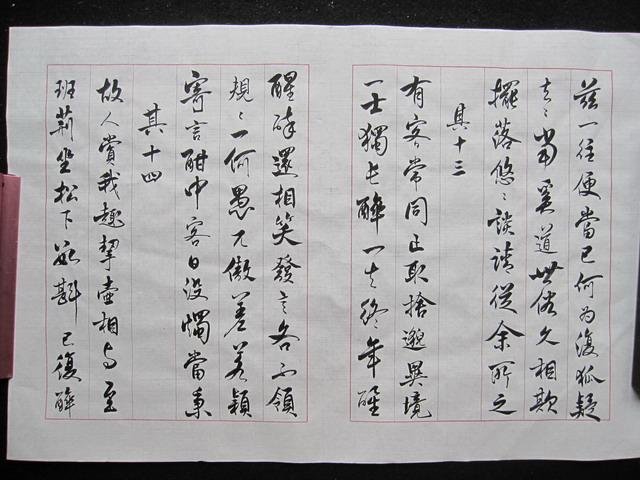 兹一往便當已何為復狐疑
去〻當奚道世俗久相欺
擺落悠〻談請從余所之
其十三
有客常同止取捨邈異境
一士獨長醉一夫終年醒
醒醉還相笑發言各不領
規〻一何愚兀傲差若穎
寄言酣中客日沒燭當秉
其十四
故人賞我趣挈壺相与至
班荊坐松下數斟已復醉